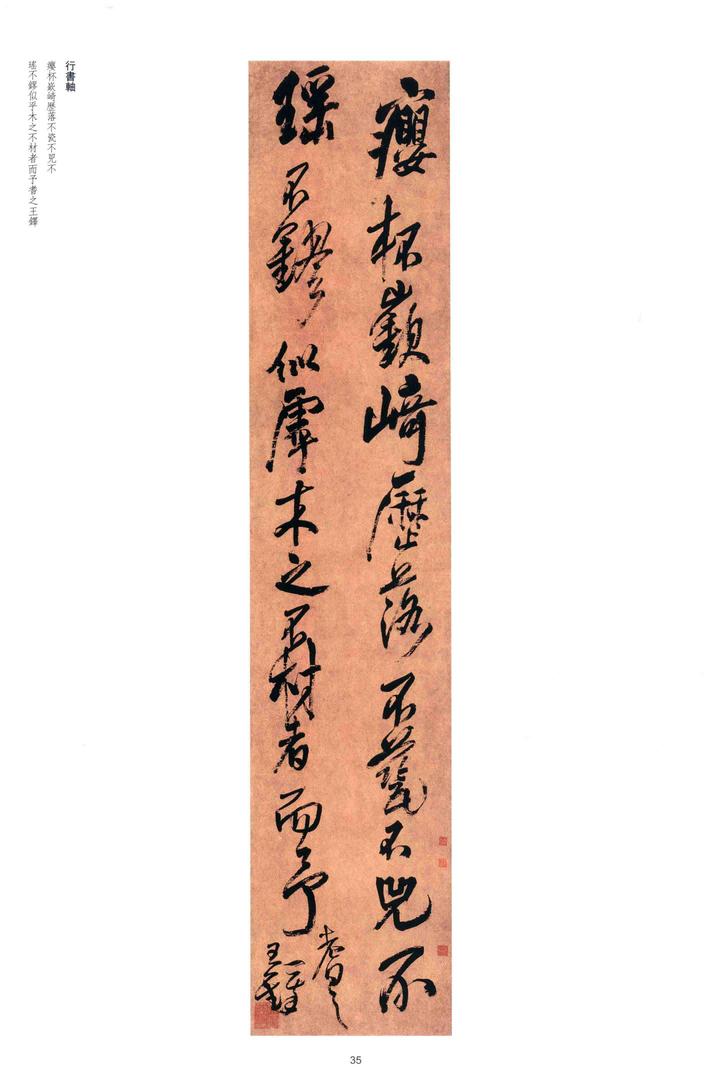 行書軸
癭杯嶔崎歷落不瓷不兕不
瑤不鏐似乎木之不材者而予耆之王鐸
癭杯嶔崎歷落不瓷不兕不
瑤不鏐似虖木之不材者而予
耆之
王鐸
35